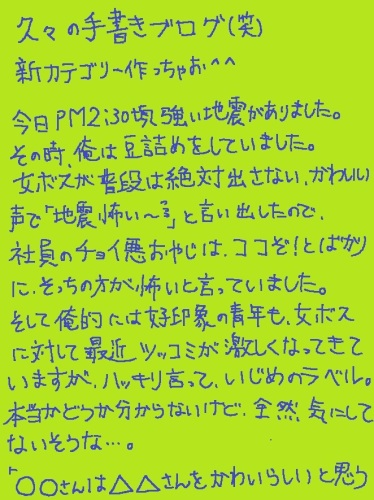 久々の手書きブログ(笑)
新カテゴリー作っちゃお^^
今日PM2:30頃、強い地震がありました。
その時、俺は豆詰めをしていました。
女ボスが普段は絶対出さない、かわいい
声で「地震怖い〜ろ」と言い出したので、
社員のチョイ悪おやじは、ココぞ!とばかり
に、そっちの方が怖いと言っていました。
そして俺的には好印象の青年も、女ボス
に対して最近ツッコミが激しくなってきて
いますが、ハッキリ言って、いじめのラベル。
本当かどうか分からないけど、全然気にして
ないそうな…。
「〇〇さんは△△さんをかわいらしいと思う